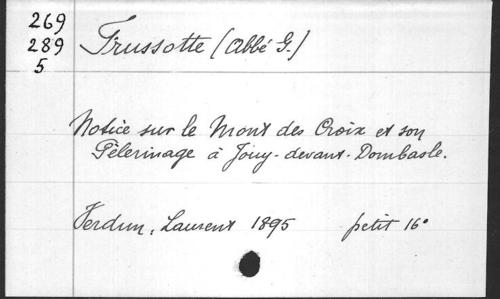 269
289
5
Trussotte (Abbé G.)
Notice sur le Mont des Croix et son
Pèlerinage à Jouy-devant-Dombasle.
Verdun, Laurent 1895 petit 16°